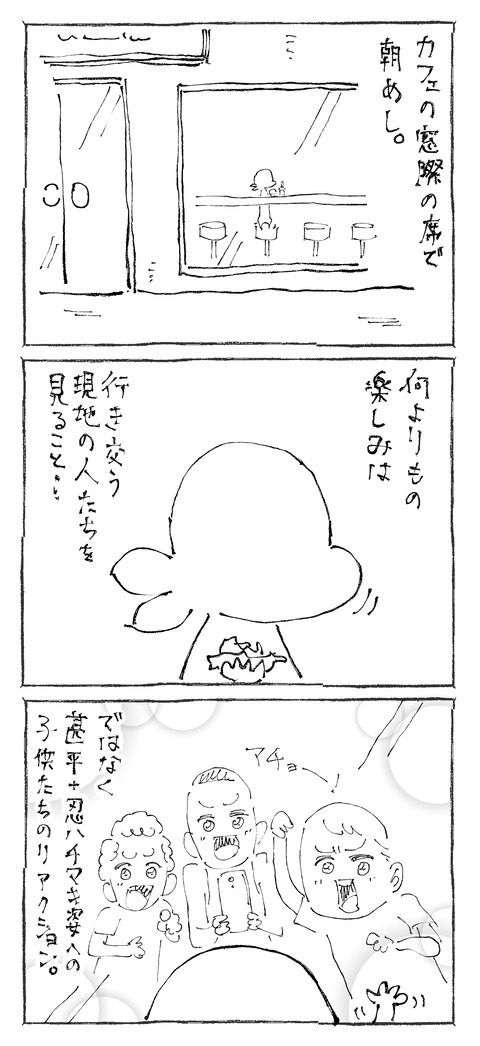 カフェの窓際の席で
朝めし。
何よりもの
楽しみは
行き交う
現地の人たちを
見ること…
アチョー
ではなく
甚平＋忍ハチマキ姿への
子供たちのリアクション。